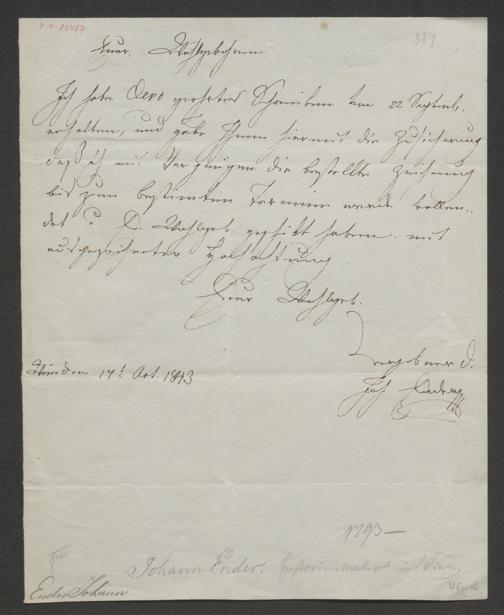 387
Euer. Wohlgeboren
Ich habe Dero geehrtes Schreiben vom 22 Septemb.
erhalten, und gebe Ihnen hiermit die Zusicherung
daß ich mit Vergnügen die bestellte Zeichnung
bis zum bestimmten Termine werde vollen-
det E. Wohlgeb. geschikt haben. mit
ausgezeichneter Hochachtung
Euer Wohlgeb.
Ergebner D.
Joh Ender
17t Oct.
Johann Ender. Historienmaler in Wien
Ender Johann